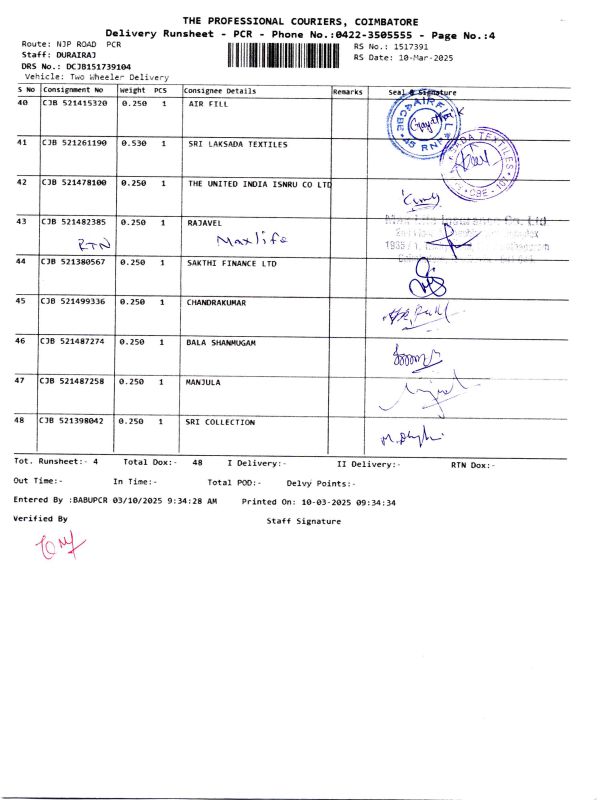 THE PROFESSIONAL COURIERS, COIMBATORE
Delivery Runsheet - PCR - Phone No.:0422-3505555 - Page No.:4
Route: NJP ROAD PCR
RS No.: 1517391
Staff: DURAIRAJ
RS Date: 10-Mar-2025
DRS No.: DCJB151739104
Vehicle: Two Wheeler Delivery
S No Consignment No Weight PCS Consignee Details Remarks Seal & Signature
40 CJB 521415320 0.250 1 AIR FILL
41 CJB 521261190 0.530 1 SRI LAKSADA TEXTILES
42 CJB 521478100 0.250 1 THE UNITED INDIA ISNRU CO LTD
43 CJB 521482385 0.250 1 RAJAVEL
RTN Maxlife
44 CJB 521380567 0.250 1 SAKTHI FINANCE LTD
45 CJB 521499336 0.250 1 CHANDRAKUMAR
46 CJB 521487274 0.250 1 BALA SHANMUGAM
47 CJB 521487258 0.250 1 MANJULA
48 CJB 521398042 0.250 1 SRI COLLECTION
Tot. Runsheet:- 4 Total Dox:- 48 I Delivery:- II Delivery:- RTN Dox:-
Out Time:- In Time:- Total POD:- Delvy Points:-
Entered By :BABUPCR 03/10/2025 9:34:28 AM Printed On: 10-03-2025 09:34:34
Verified By Staff Signature